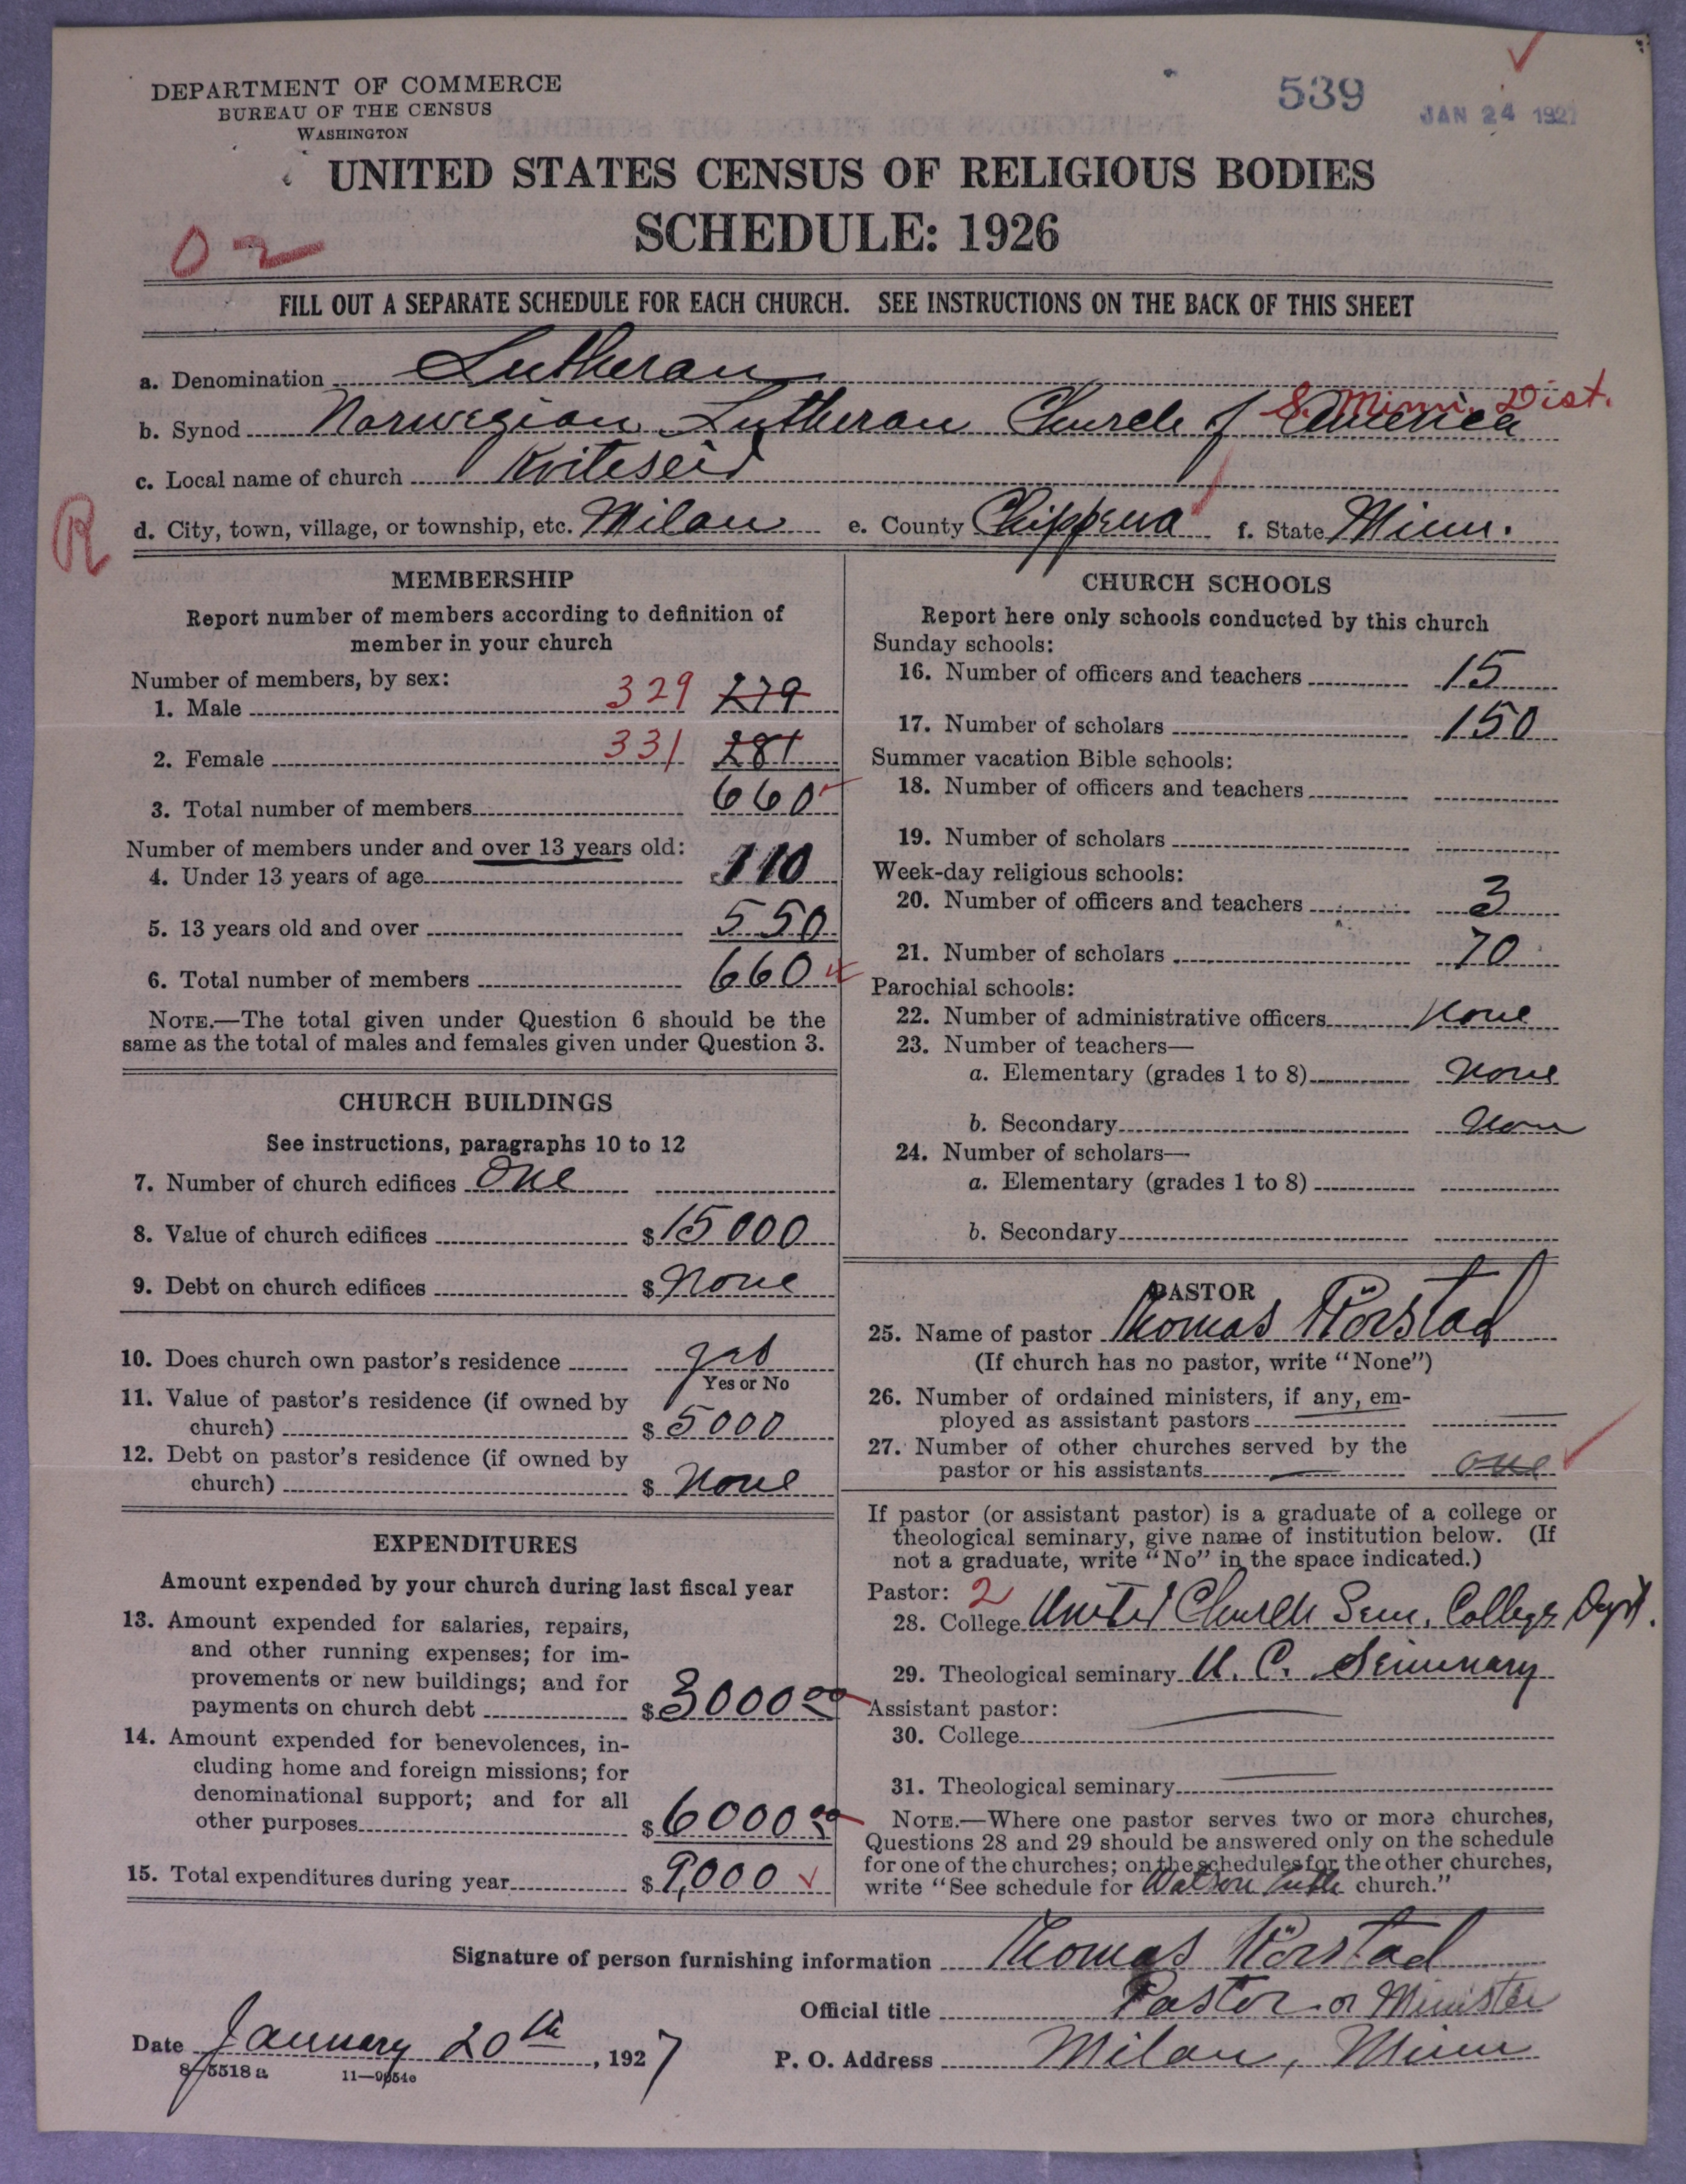 DEPARTMENT OF COMMERCE
BUREAU OF THE CENSUS
WASHINGTON
539
JAN 24 1927
UNITED STATES CENSUS OF RELIGIOUS BODIES
SCHEDULE: 1926
02
FILL OUT A SEPARATE SCHEDULE FOR EACH CHURCH. SEE INSTRUCTIONS ON THE BACK OF THIS SHEET
a. Denomination Lutheran
S. Minn. Dist.
b. Synod Norwegian Lutheran Church of America
c. Local name of church Kviteseid
R
d. City, town, village, or township, etc. Milan e. County Chippewa f. State Minn.
MEMBERSHIP
Report number of members according to definition of
member in your church
Number of members, by sex:
1. Male 329 279
2. Female 331 281
3. Total number of members 660
Number of members under and over 13 years old:
4. Under 13 years of age 110
5. 13 years old and over 550
6. Total number of members 660
NOTE.—The total given under Question 6 should be the
same as the total of males and females given under Question 3.
CHURCH BUILDINGS
See instructions, paragraphs 10 to 12
7. Number of church edifices One
8. Value of church edifices $15000
9. Debt on church edifices $None
10. Does church own pastor's residence yes
Yes or No
11. Value of pastor's residence (if owned by
church) $5000
12. Debt on pastor's residence (if owned by
church) $None
EXPENDITURES
Amount expended by your church during last fiscal year
13. Amount expended for salaries, repairs,
and other running expenses; for im-
provements or new buildings; and for
payments on church debt $3000 00
14. Amount expended for benevolences, in-
cluding home and foreign missions; for
denominational support; and for all
other purposes $6000 00
15. Total expenditures during year $9,000
CHURCH SCHOOLS
Report here only schools conducted by this church
Sunday schools:
16. Number of officers and teachers 15
17. Number of scholars 150
Summer vacation Bible schools:
18. Number of officers and teachers
19. Number of scholars
Week-day religious schools:
20. Number of officers and teachers 3
21. Number of scholars 70
Parochial schools:
22. Number of administrative officers None
23. Number of teachers—
a. Elementary (grades 1 to 8) None
b. Secondary None
24. Number of scholars—
a. Elementary (grades 1 to 8)
b. Secondary
PASTOR
25. Name of pastor Thomas Rörstad
(If church has no pastor, write "None")
26. Number of ordained ministers, if any, em-
ployed as assistant pastors
27. Number of other churches served by the
pastor or his assistants one
If pastor (or assistant pastor) is a graduate of a college or
theological seminary, give name of institution below. (If
not a graduate, write "No" in the space indicated.)
Pastor: 2
28. College United Church Sem. College Dept.
29. Theological seminary U. C. Seminary
Assistant pastor:
30. College
31. Theological seminary
NOTE.—Where one pastor serves two or more churches,
Questions 28 and 29 should be answered only on the schedule
for one of the churches; on the schedules for the other churches,
write "See schedule for Watson Luth church."
Signature of person furnishing information Thomas Rörstad
Official title Pastor or Minister
Date January 20th, 1927 P. O. Address Milan, Minn
8-5518a 11-9054c